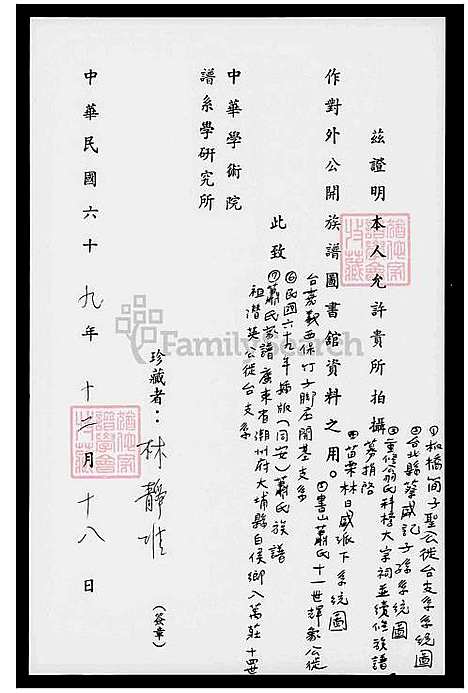 茲證明本人允許貴所拍攝
①板橋簡子聖公徙台支系系統圖
②台北縣蔡咸記子孫系統圖
③重修翁氏科榜大宗祠並續修族譜
募捐啓
④苗栗林日盛派下系統圖
作對外公開族譜圖書館資料之用。
⑤書山蕭氏十一世輝豪公徙
台嘉義西保竹子腳居開基支系
⑥民國六十九年編版(同安)蕭氏族譜
⑦蕭氏家譜廣東省潮州府大埔縣白侯鄉入萬莊十四世
祖潛英公徙台支系
此致
中華學術院
譜系學研究所
珍藏者：林靜
(簽章)
中華民國六十九年十二月十八日
FamilySearch